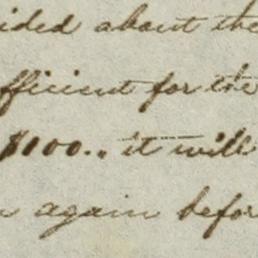 ided about the
fficient for the
$1000.. it will
again befor